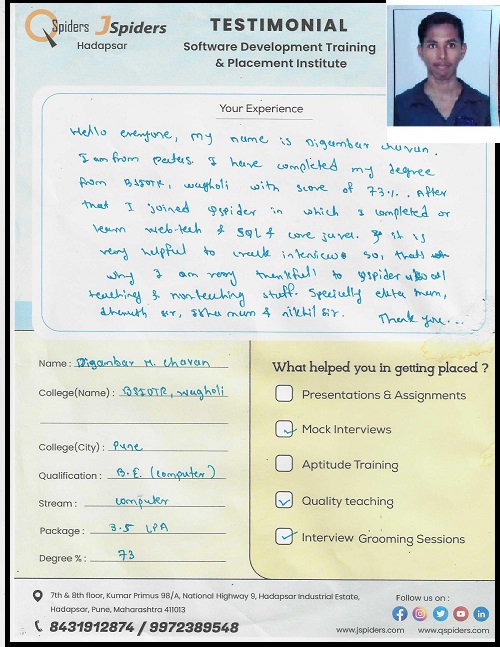 QSpiders JSpiders
Hadapsar
TESTIMONIAL
Software Development Training
& Placement Institute
Your Experience
Hello everyone, my name is Digambar chavan.
I am from I have completed my degree
from BSIOTR, wagholi with score of 73%. After
that I joined Qspider in which I completed or
learn web-tech & SQL & core java. it is
very helpful to crack interviews so, thats
why I am very thankful to Qspider all
teaching & nonteaching staff. Specially mam,
sir, mam & nikhil sir. Thank you...
Name : Digambar M. Chavan
College(Name) : BSIOTR, wagholi
College(City) : Pune
Qualification : B.E. (computer)
Stream : computer
Package : 3.5 LPA
Degree % : 73
What helped you in getting placed ?
Presentations & Assignments
Mock Interviews
Aptitude Training
Quality teaching
Interview Grooming Sessions
7th & 8th floor, Kumar Primus 98/A, National Highway 9, Hadapsar Industrial Estate,
Hadapsar, Pune, Maharashtra 411013
8431912874 / 9972389548
Follow us on :
www.jspiders.com www.qspiders.com